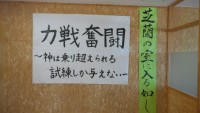 力戦奮闘
～神は乗り超えられる
試練しか与えない～
芝蘭の室に入る如し